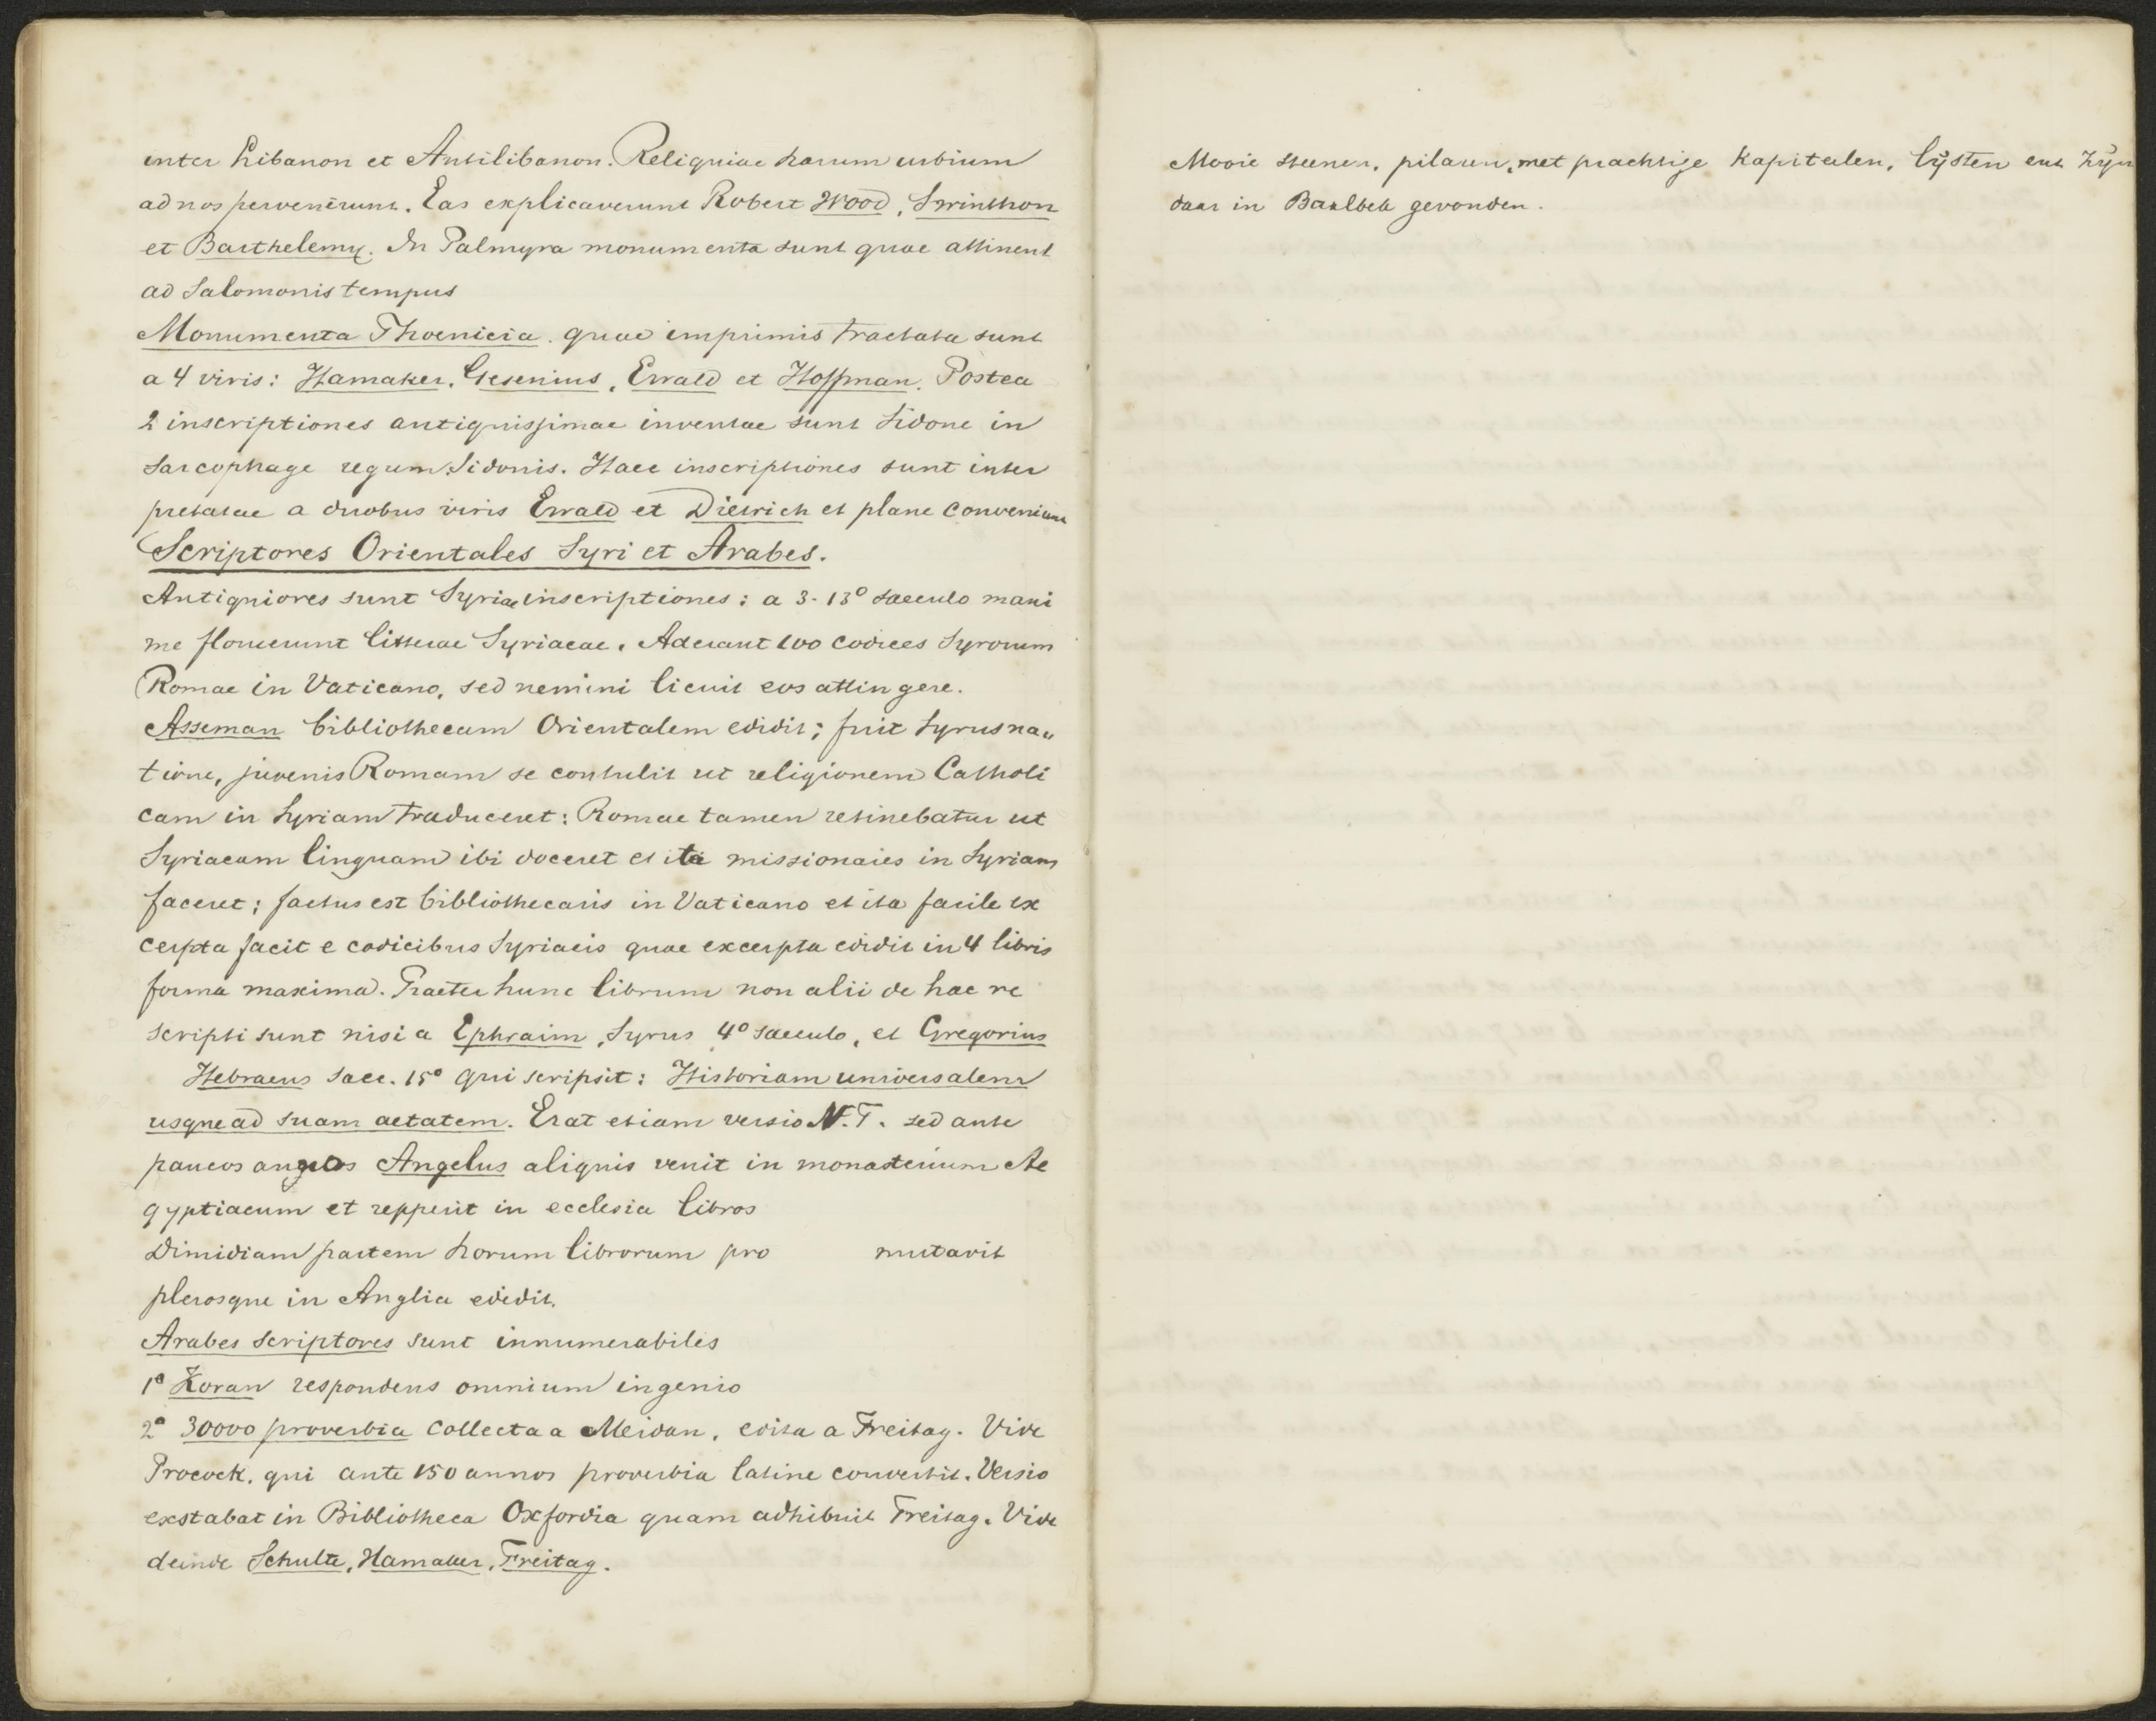 inter Libanon et Antilibanon. Reliquiae harum urbium
ad nos pervenerunt. Eas explicaverunt Robert Wood, Swinthon
et Barthelemy. In Palmyra monumenta sunt quae attinent
ad Salomonis tempus
Monumenta Phoenicia. quae imprimis tractata sunt
a 4 viris: Hamaker, Gesenius, Ewald et Hoffman. Postea
2 inscriptiones antiquissimae inventae sunt Sidone in
sarcophage regum Sidonis. Haec inscriptiones sunt inter
pretatae a duobus viris Ewald et Dietrich et plane conveniunt
Scriptores Orientales Syri et Arabes.
Antiquiores sunt Syriae inscriptiones: a 3-13° saeculo maxi
me floruerunt litterae Syriacae. Aderant 100 codices Syrorum
Romae in Vaticano, sed nemini licuit eos attingere.
Asseman bibliothecam Orientalem edidit; fuit Syrus na„
tione, juvenis Romam se contulit ut religionem Catholi
cam in Syriam traduceret: Romae tamen retinebatur ut
Syriacam linguam ibi doceret et ita missionaies in Syriam
faceret; factus est bibliothecaris in Vaticano et ita facile ex
cerpta facit e codicibus Syriacis quae excerpta edidit in 4 libris
forma maxima. Praeter hunc librum non alii de hac re
scripti sunt nisi a Ephraim, Syrus 4° saeculo, et Gregorius
Hebraeus saec. 15° qui scripsit: Historiam universalem
usque ad suam aetatem. Erat etiam versio N.T. sed ante
paucos annos Angelus aliquis venit in monasterium Ae
gyptiacum et repperit in ecclesia libros
Dimidiam partem horum librorum pro mutavit
plerosque in Anglia edidit.
Arabes scriptores sunt innumerabiles
1° Koran respondens omnium ingenio
2° 30000 proverbia collecta a Meidan, edita a Freitag. Vide
Procock. qui ante 150 annos proverbia latine convertit. Versio
exstabat in Bibliotheca Oxfordia quam adhibuit Freitag. Vide
deinde Schulte, Hamaker, Freitag.
Mooie steenen, pilaren, met prachtige kapitalen, lijsten enz zijn
daar in Baalbek gevonden.